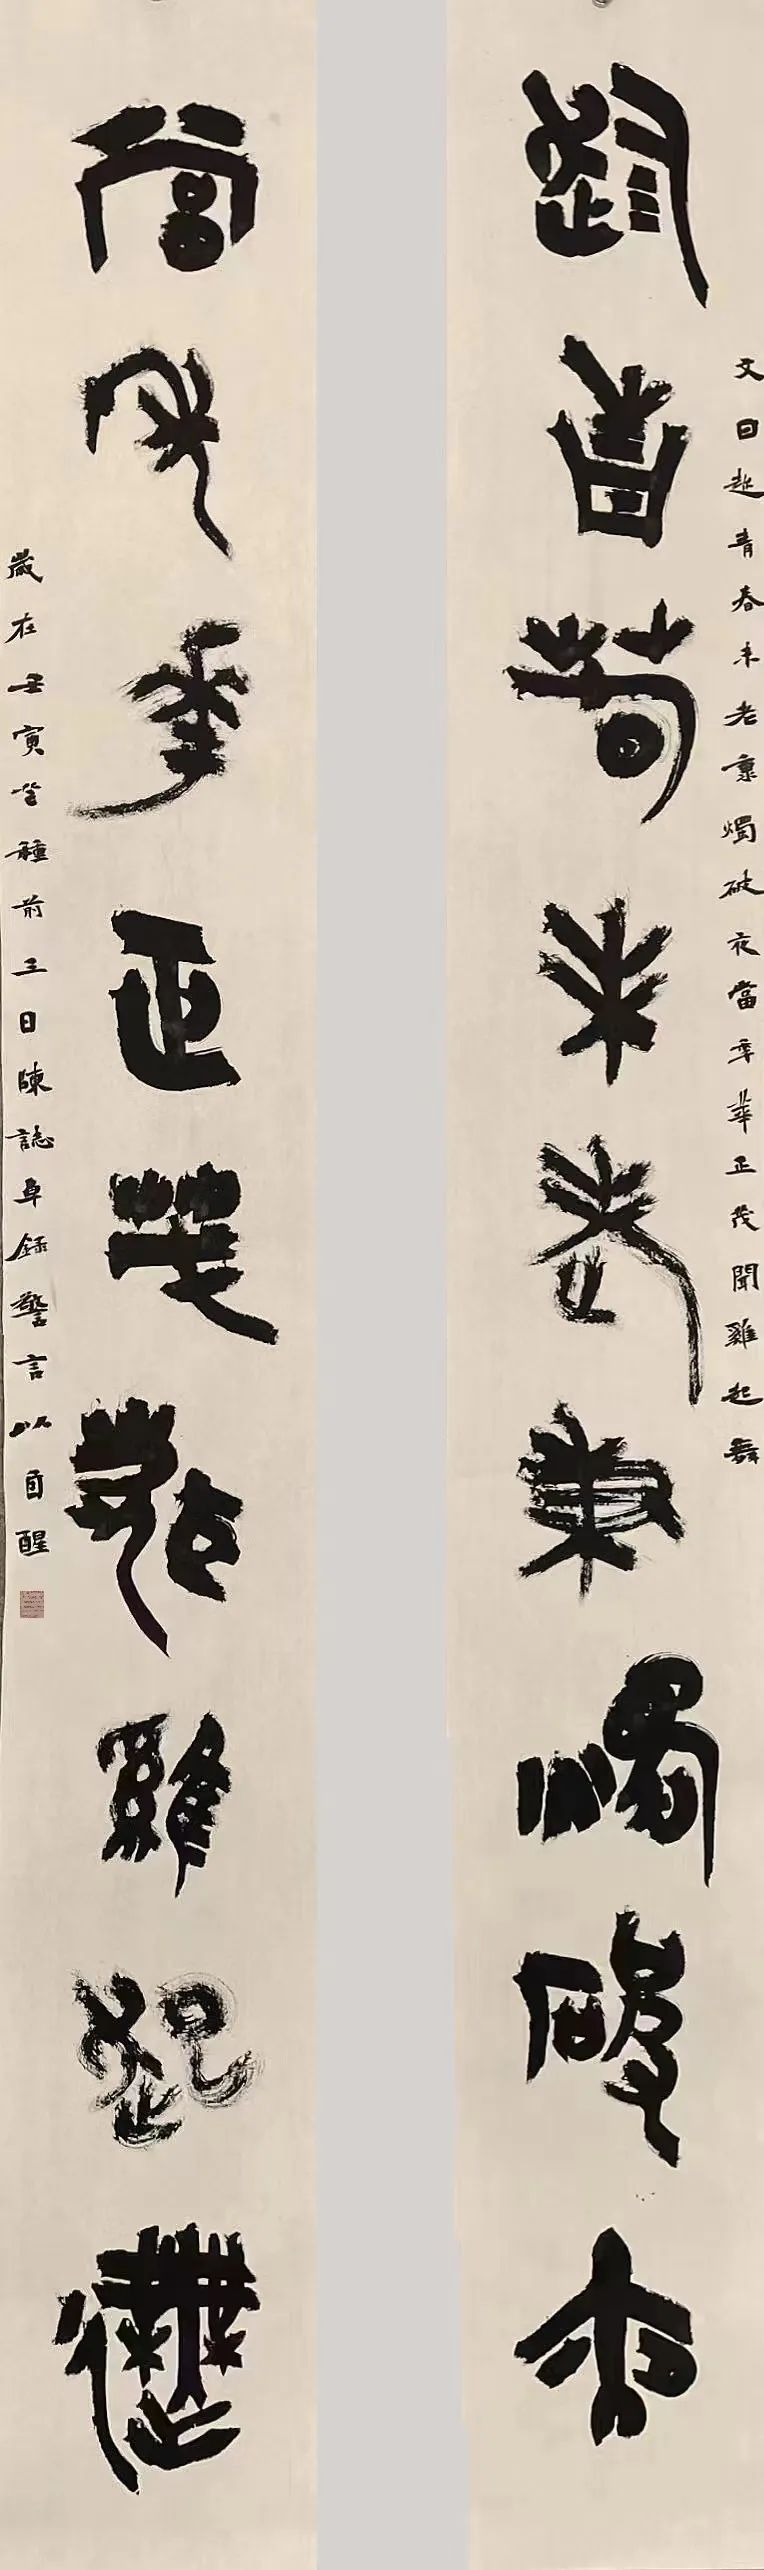 趁青春未老秉燭破夜
當年華正茂聞雞起舞
文曰趁青春未老秉燭破夜當年華正茂聞雞起舞
歲在壬寅芒種前日陳誌卓錄警言以自醒